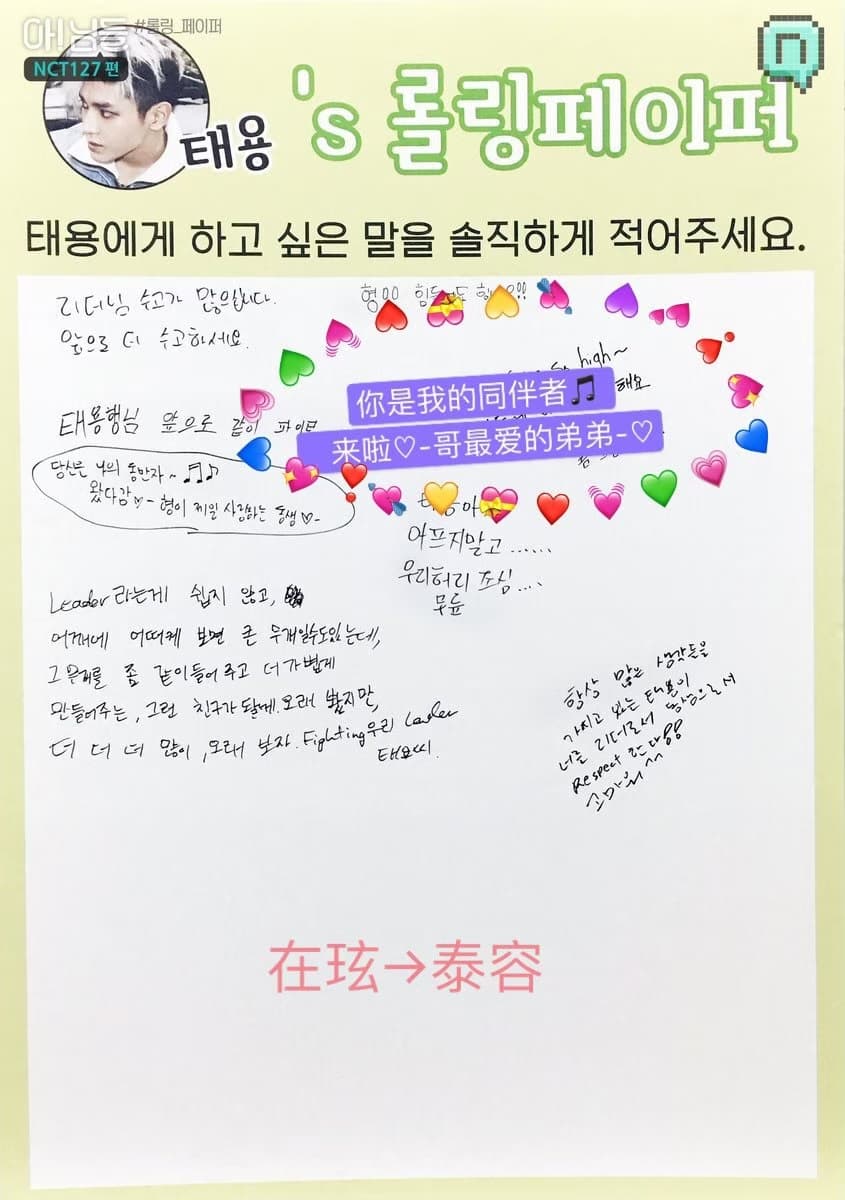 애남등
#롤링_페이퍼
NCT127 편
태용 's 롤링페이퍼
태용에게 하고 싶은 말을 솔직하게 적어주세요.
리더님 수고가 많으십니다.
앞으로 더 수고하세요.
형
high~
해요
태용형님 앞으로 같이
你是我的同伴者🎵
来啦♡-哥最爱的弟弟-♡
당신은 나의 동반자~ ♫♪
왔다감♡- 형이 제일 사랑하는 동생♡-
아프지말고 ......
우리허리 조심....
무릎
Leader라는게 쉽지 않고,
어깨에 어떠케 보면 큰 무게일수도있는데,
그 무게를 좀 같이들어 주고 더 가볍게
만들어주는, 그런 친구가 될께. 오래 봤지만,
더 더 더 많이, 오래 보자. Fighting 우리 Leader
태요씨.
항상 많은 생각들을
가지고 있는 태용이
너를 리더로서 동생으로서
Respect 한다
고마워 ^^
在玹→泰容